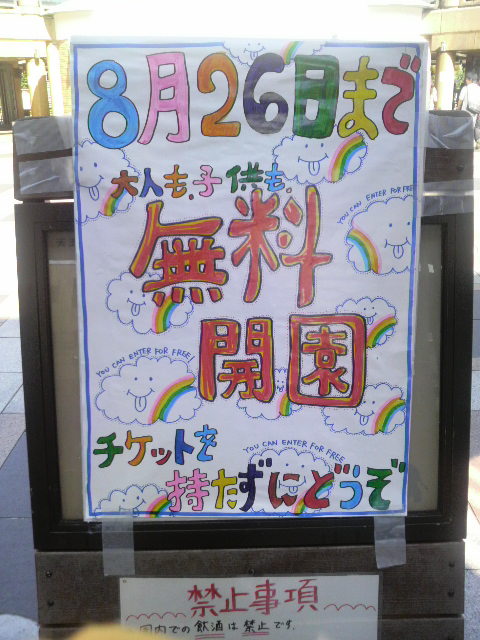 8月26日まで
大人も、子供も、
YOU CAN ENTER FOR FREE
無料
開園
YOU CAN ENTER FOR FREE!
YOU CAN ENTER FOR FREE
チケットを
持たずにどうぞ
禁止事項
園内での飲酒は禁止です。